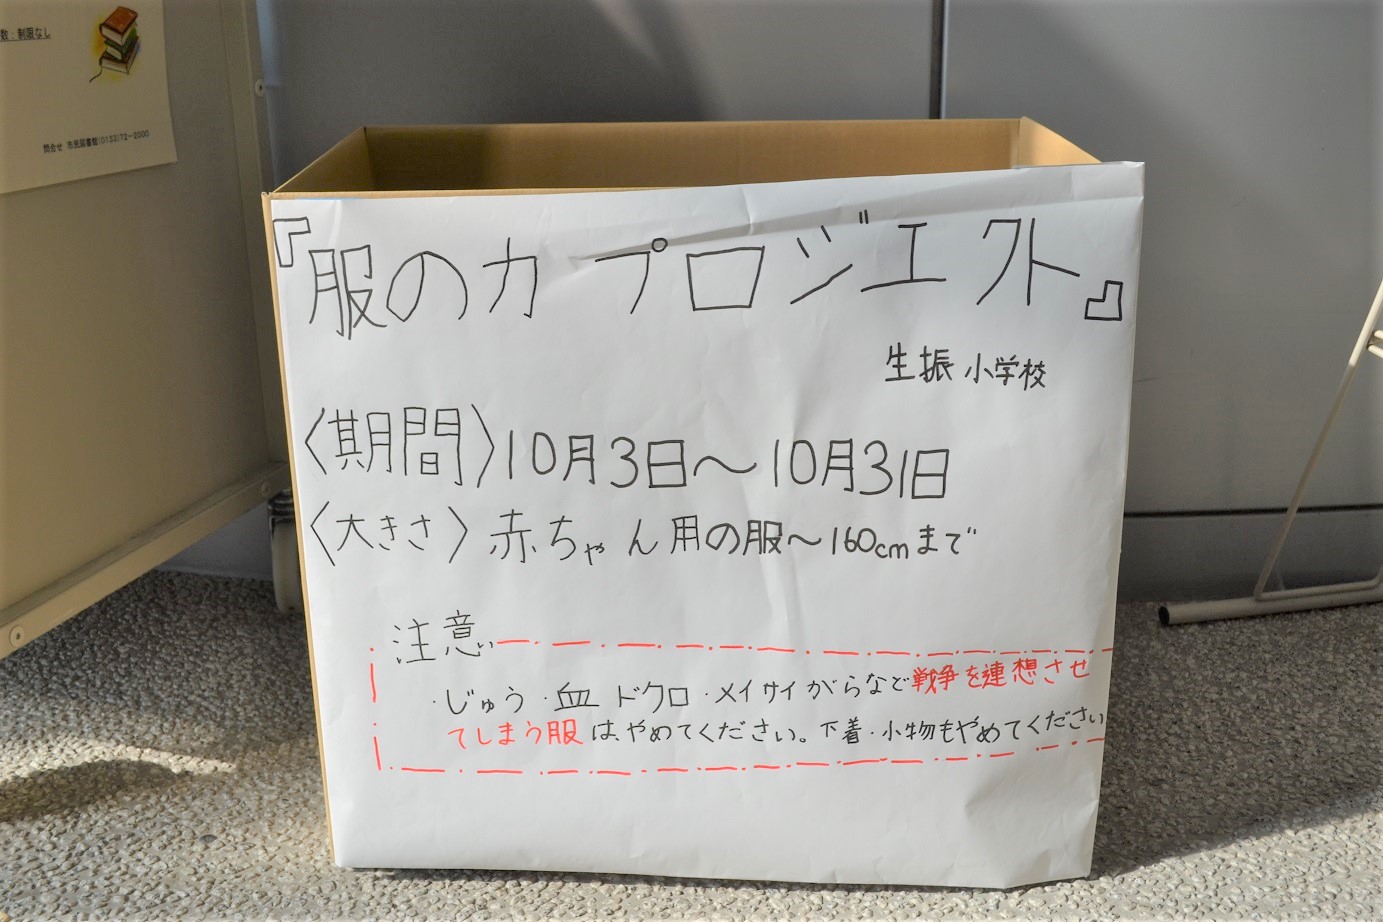 数：制限なし
問合せ 市民図書館(0133)72-2000
『服の力プロジェクト』
生振 小学校
〈期間〉10月3日～10月31日
〈大きさ〉赤ちゃん用の服～160cmまで
注意
・じゅう・血 ドクロ・メイサイがらなど戦争を連想させ
てしまう服は、やめてください。下着・小物もやめてください